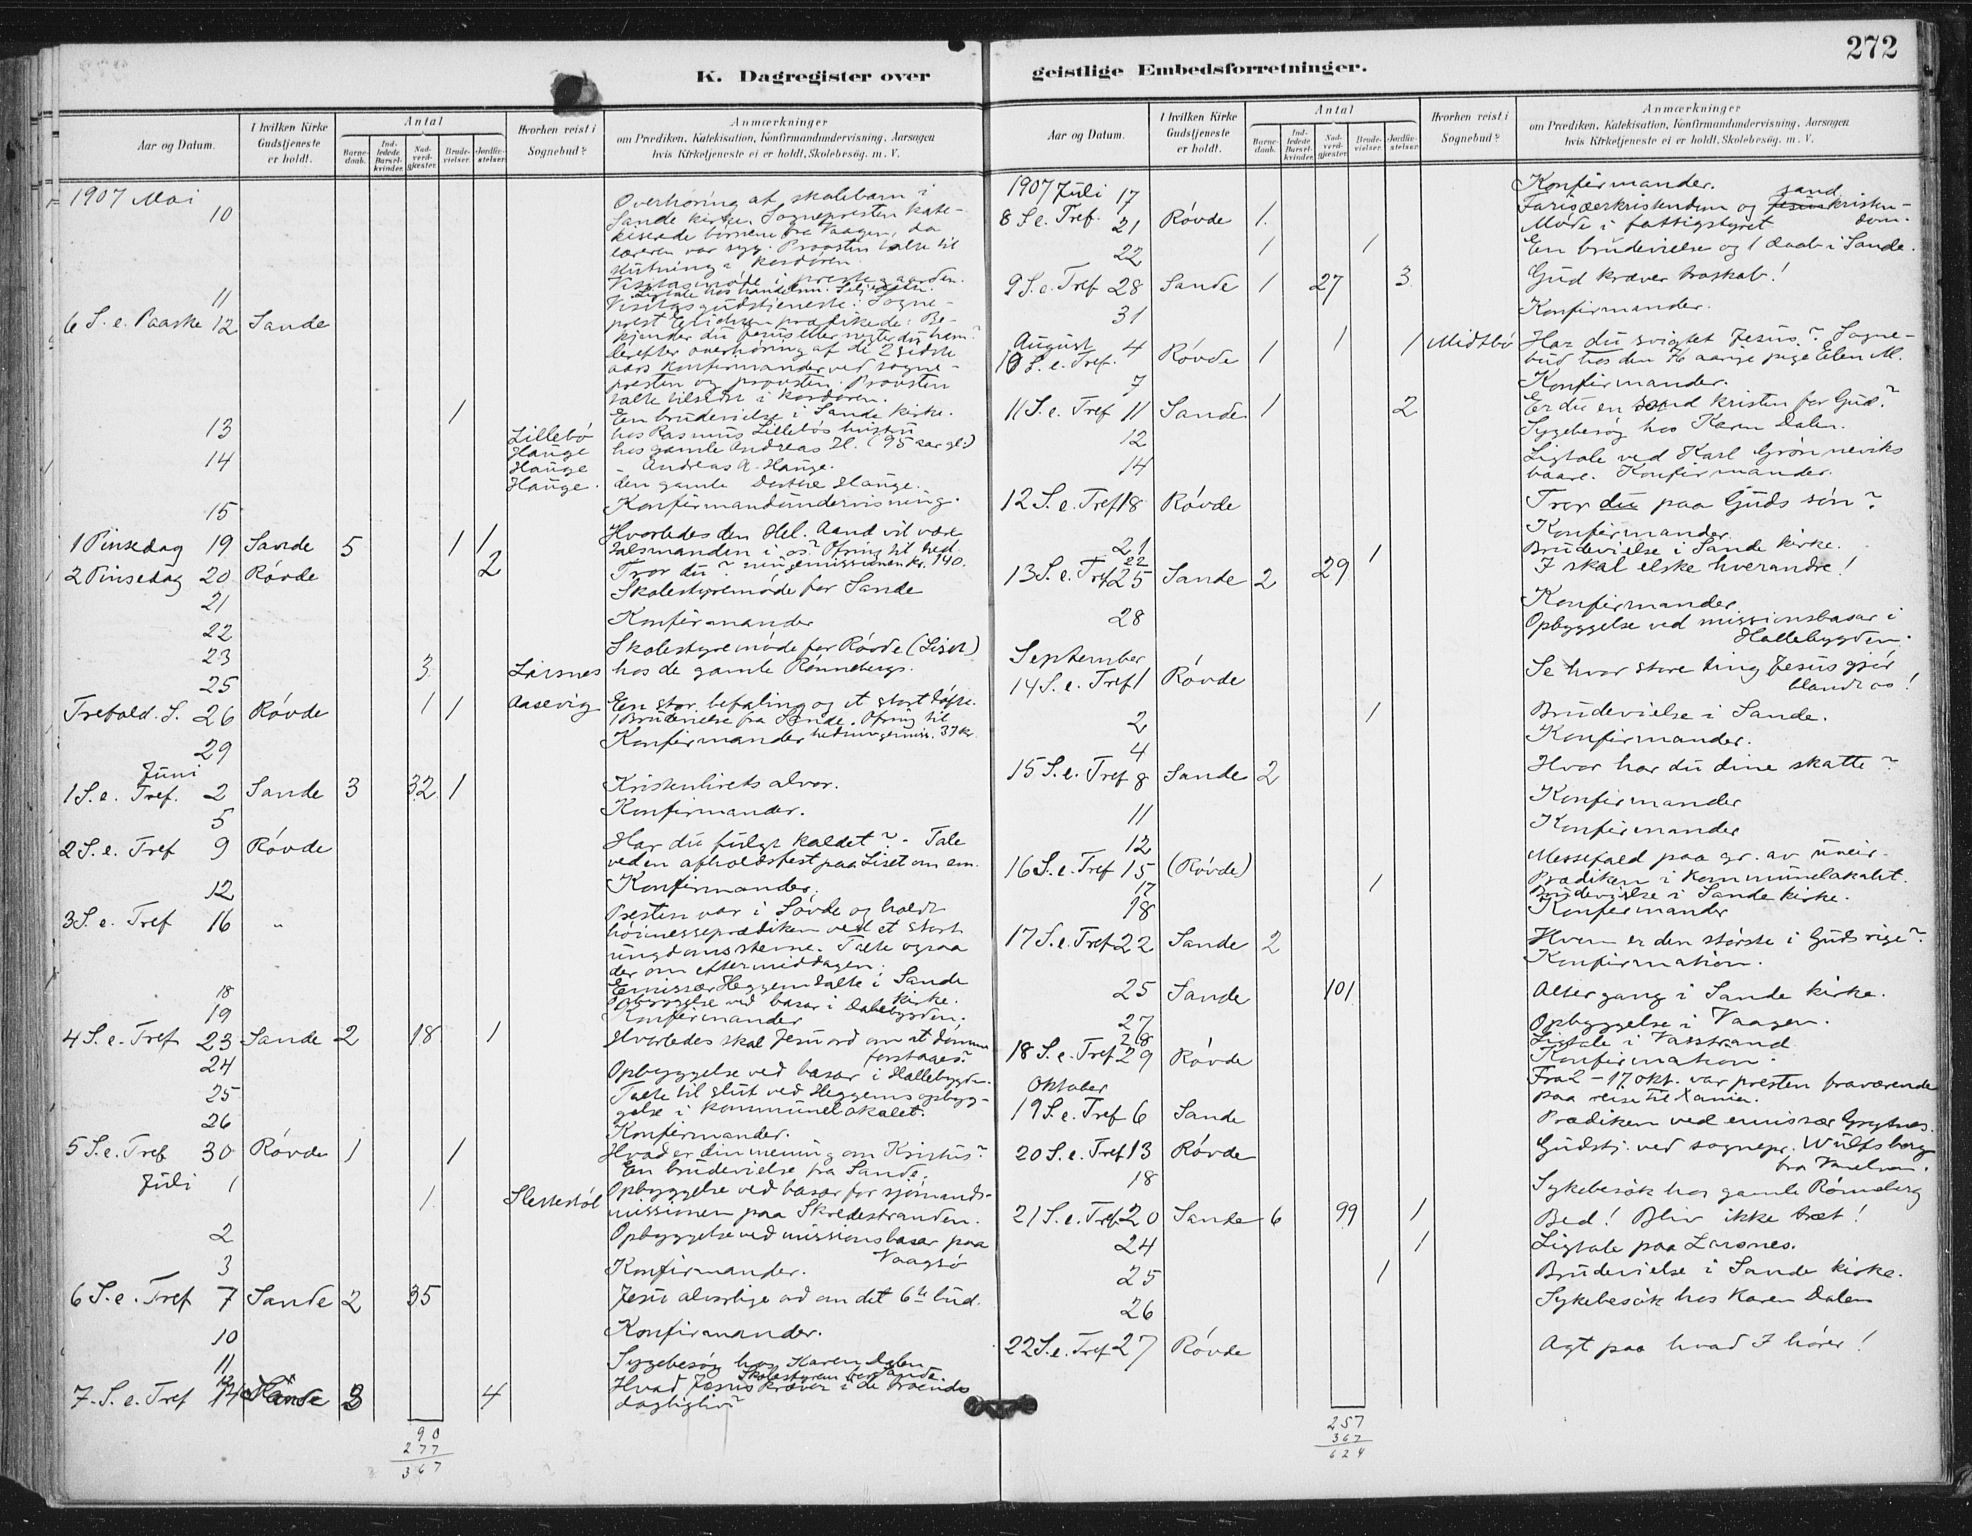 272
K. Dagregister over geistlige Embedsforretninger.
Aar og Datum.
I hvilken Kirke Gudstjeneste er holdt.
Antal
Barnedaab.
Indledede Barselkvinder.
Nadverdgjæster.
Brudevielser.
Jordfæstelser.
Hvorhen reist i Sognebud?
Anmærkninger
om Prædiken, Katekisation, Konfirmandundervisning, Aarsagen
hvis Kirketjeneste ei er holdt, Skolebesøg. m. V.
1907 Mai
10 Overhøring af skolebørn i
Sande kirke. Sognepresten kate-
kiserade børnene fra Vaagen, da
læreren var syg. Provsten talte til
slutning i kordøren.
11 Visitasmøde i prestegaarden.
6 S. e. Paaske 12 Sande Visitasgudstjeneste. Sogne-
prest prædikede: Be-
kjender du Jesus eller negter du ham?
Derefter overhøring af de 2 sidste
aars konfirmander ved sogne-
presten og provsten. Provsten
talte tilsidst i kordøren.
1 En brudevielse i Sande kirke.
13 Lillebø hos Rasmus Lillebøs hustru
Hauge hos gamle Andreas H. (95 aar gl)
14 Hauge Andreas A. Hauge.
Hauge. den gamle Dorthe Hauge.
15 Konfirmandundervisning.
1 Pinsedag 19 Sande 5 1 1 Hvorledes den Hel. Aand vil være
talsmanden i os? Ofring til hed.
2 Pinsedag 20 Røvde 2 Tror du? ningemissionen kr. 140.
21 Skolestyremøde for Sande
22 Konfirmander
23 Skolestyremøde for Røvde (Liset)
25 3 Larsnes hos de gamle Rønnebergs.
Trefold. S. 26 Røvde 1 1 Aasevig En stor befaling og et stort løfte.
1 Brudevielse fra Sande. Ofring til
29 Konfirmander hedningemis. 37 kr.
Juni
1 S. e. Tref. 2 Sande 3 32 1 Kristenlivets alvor.
5 Konfirmander.
2 S. e. Tref 9 Røvde Har du fulgt kaldet? - Tale
ved en afholdsfest paa Liset om em.
12 Konfirmander.
3 S. e. Tref 16 " Presten var i Søvde og holdt
høimesseprædiken ved et stort
ungdomsstevne. Talte ogsaa
der om eftermiddagen.
Emissær Heggem talte i Sande
18 Opbyggelse ved basar i Dalebygden. kirke.
19 Konfirmander
4 S. e. Tref 23 Sande 2 18 1 Hvorledes skal Jesu ord om at dømme
forstaaes?
24 Opbyggelse ved basar i Hallebygden.
25 Talte til slut ved Heggems opbyg-
gelse i kommunelokalet.
26 Konfirmander.
5 S. e. Tref 30 Røvde 1 1 Hvad er din mening om Kristus?
En brudevielse fra Sande.
Juli 1 1. Slettestøl Opbyggelse ved basar for sjømands-
missionen paa Skredestranden.
2 Opbyggelse ved missionsbasar paa
Vaagsø
3 Konfirmander.
6 S. e. Tref 7 Sande 2 35 Jesu alvorlige ord om det 6te bud.
10 Konfirmander.
11 Sygebesøg hos Karen Dalen
12 Skolestyrem. for Sande.
7. S. e. Tref 14 Sande 3 4 Hvad Jesus kræver i de troendes
dagligliv?
90
277
367
Aar og Datum.
I hvilken Kirke Gudstjeneste er holdt.
Antal
Barnedaab.
Indledede Barselkvinder.
Nadverdgjæster.
Brudevielser.
Jordfæstelser.
Hvorhen reist i Sognebud?
Anmærkninger
om Prædiken, Katekisation, Konfirmandundervisning, Aarsagen
hvis Kirketjeneste ei er holdt, Skolebesøg. m. V.
1907 Juli 17 Konfirmander. sand
8 S. e. Tref. 21 Røvde 1. Farisæerkristendom og Jesus kristen-
dom.
22 Møde i fattigstyret
1 1 En brudevielse og 1 daab i Sande.
9 S. e. Tref 28 Sande 1 27 3 Gud kræver troskab!
31 Konfirmander.
August
10 S. e. Tref. 4 Røvde 1 1 1 Midtbø Har du svigtet Jesus? Sogne-
bud hos den 76 aarige pige Elen M.
7 Konfirmander.
11 S. e. Tref 11 Sande 1 2 Er du en sand kristen for Gud?
12 Sygebesøg hos Karen Dalen.
14 Ligtale ved Karl Grønneviks
baare. Konfirmander.
12 S. e. Tref 18 Røvde Tror du paa Guds søn?
21 Konfirmander.
22 1 Brudevielse i Sande kirke.
13 S. e. Tref 25 Sande 2 29 I skal elske hverandre!
28 Konfirmander
Opbyggelse ved missionsbasar i
Hallebygden.
September
14 S. e. Tref 1 Røvde Se hvor store ting Jesus gjør
blandt os!
2 1 Brudevielse i Sande.
4 Konfirmander.
15 S. e. Tref 8 Sande 2 Hvor har du dine skatte?
11 Konfirmander
12 Konfirmander
16 S. e. Tref 15 (Røvde) Messefald paa gr. av uveir.
Prædiken i kommunelokalet.
17 1 Brudevielse i Sande kirke.
18 Konfirmander
17 S. e. Tref 22 Sande 2 Hvem er den største i Guds rige?
Konfirmation.
25 Sande 101 Altergang i Sande kirke.
27 Opbyggelse i Vaagen.
28 Ligtale i Vasstrand
18 S. e. Tref 29 Røvde Konfirmation.
Oktober Fra 2 - 17 okt. var presten fraværende
paa reise til Xania.
19 S. e. Tref 6 Sande Prædiken ved emissær Grytnes.
20 S. e. Tref 13 Røvde Gudstj. ved sognepr. Wulfsberg
fra
18 Sykebesøk hos gamle Rønneberg
21 S. e. Tref. 20 Sande 6 99 1 Bed! Bliv ikke træt!
24 1 Ligtale paa Larsnes.
25 1 Brudevielse i Sande kirke.
26 Sykebesøk hos Karen Dalen
22 S. e. Tref 27 Røvde Agt paa hvad I hører!
257
367
624